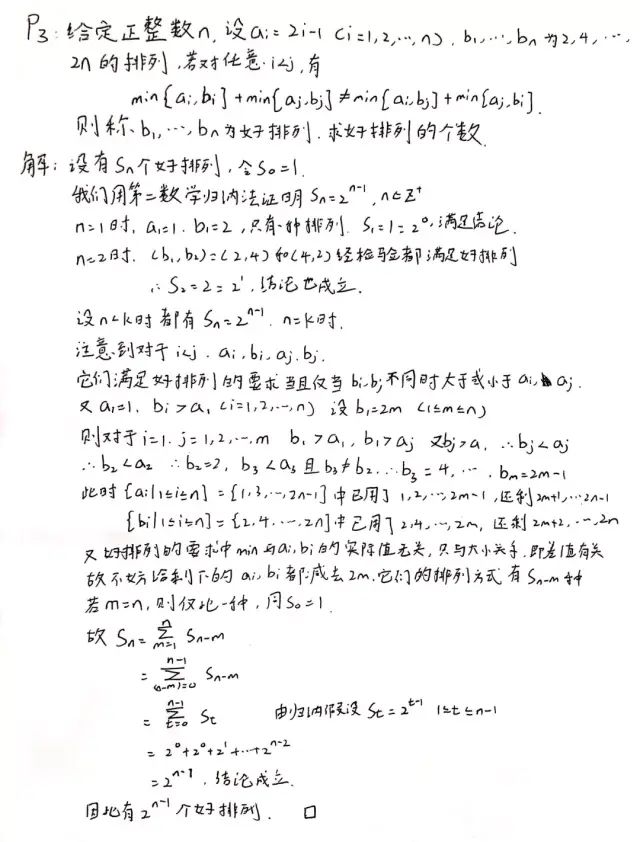 P3: 给定正整数n, 设ai=2i-1 (i=1,2,…,n), b1,…,bn为2,4,…,
2n的排列, 若对任意i<j, 有
min{ai,bi}+min{aj,bj}≠min{ai,bj}+min{aj,bi}.
则称b1,…,bn为好排列. 求好排列的个数.
解: 设有Sn个好排列, 令S0=1.
我们用第二数学归纳法证明Sn=2^{n-1}, n∈Z⁺
n=1时, a1=1. b1=2, 只有一种排列. S1=1=2^0, 满足结论.
n=2时. (b1,b2)=(2,4)和(4,2)经检验都满足好排列
∴S2=2=2^1, 结论也成立.
设n<k时都有Sn=2^{n-1}. n=k时.
注意到对于i<j. ai,bi,aj,bj.
它们满足好排列的要求当且仅当bi,bj不同时大于或小于ai, aj.
又a1=1. bi>a1 (i=1,2,…,n) 设b1=2m (1≤m≤n)
则对于i=1. j=1,2,…,m b1>a1, b1>aj 又bj>a1 ∴bj<aj
∴b2<a2 ∴b2=2, b3<a3且b3≠b2 ∴b3=4, …, bm=2m-1
此时{ai|1≤i≤n}={1,3,…,2n-1}中已用了1,2,…,2m-1, 还剩2m+1,…2n-1
{bi|1≤i≤n}={2,4…,2n}中已用了2,4,…,2m, 还剩2m+2,…,2n
又好排列的要求中min与ai,bi的实际值无关, 只与大小关系, 即差值有关
故不妨给剩下的ai,bi都减去2m. 它们的排列方式有Sn-m种
若m=n, 则仅此一种, 同S0=1.
故Sn=∑_{m=1}^{n} Sn-m
=∑_{(n-m)=0}^{n-1} Sn-m
=∑_{t=0}^{n-1} St 由归纳假设St=2^{t-1} 1≤t≤n-1
=2^0+2^0+2^1+…+2^{n-2}
=2^{n-1}. 结论成立.
因此有2^{n-1}个好排列. □